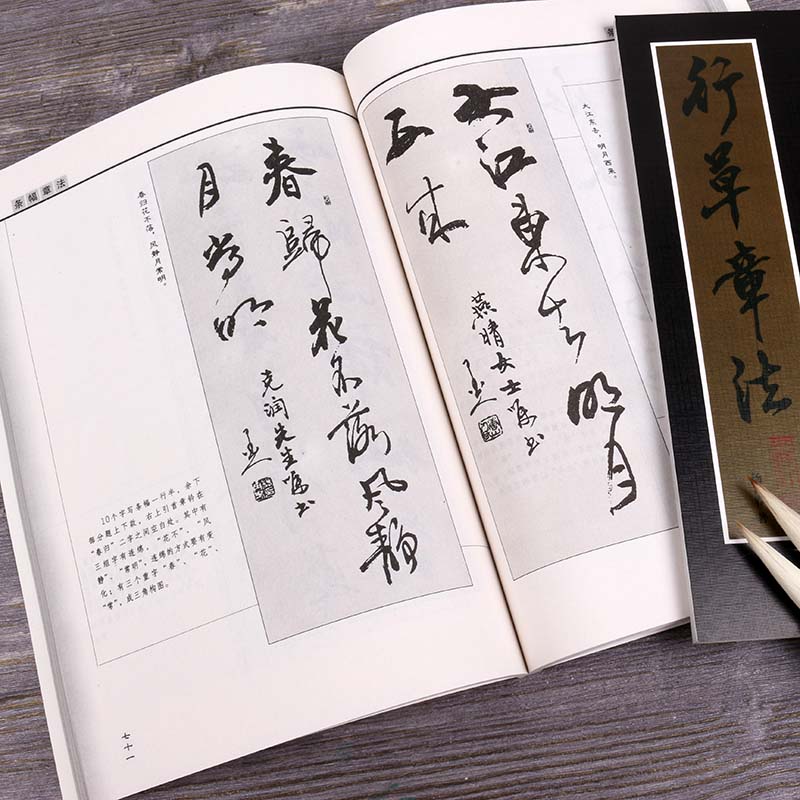 条幅章法
春归花不落，风静月常明。
春歸花不落風靜
月常明
克润先生嘱书
10个字写条幅一行半，余下
部分题上下款，右上引首章钤在
“春归”二字之间空白处。其中有
三组字有连绵，“花不”、“风
静”、“常明”，连绵的方式要有变
化；有三个重字“春”、“花”、
“常”，成三角构图。
七十一
大江东去，明月西来。
大江東去明月
西来
燕晴女士嘱书
行草章法